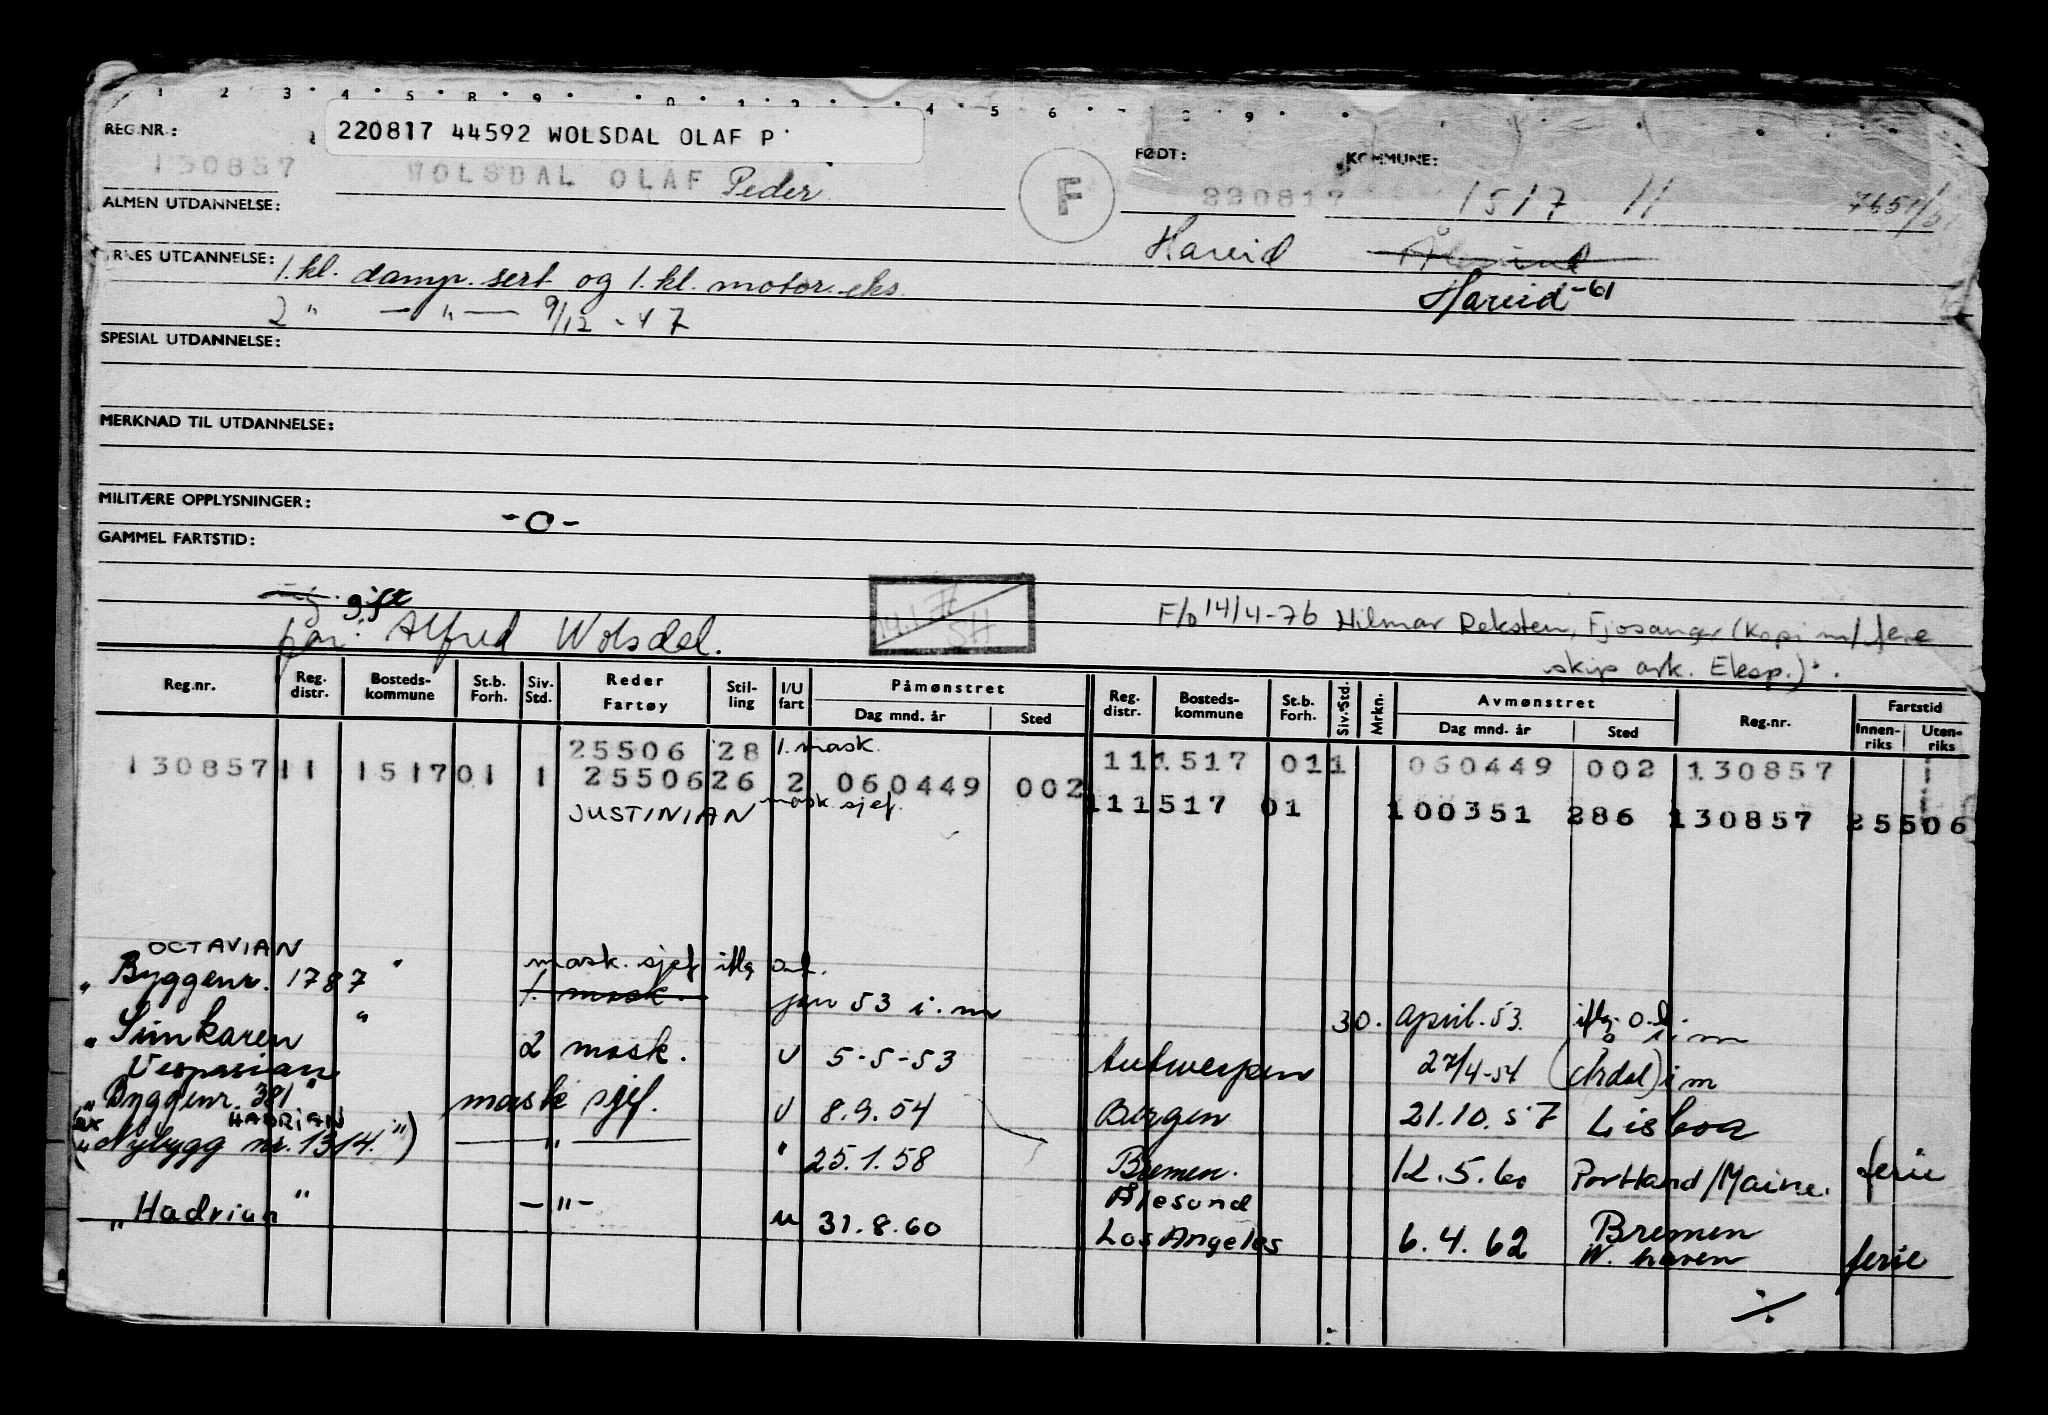 1 2 3 4 5 8 9 0 1 2 4 5 6 7 8 9
REG.NR.: 220817 44592 WOLSDAL OLAF P FØDT: KOMMUNE:
130857 WOLSDAL OLAF Peder F 220817 1517 11
ALMEN UTDANNELSE: Hareid
YRKES UTDANNELSE: 1. kl. damp. sert og 1. kl. motor. eks. Hareid -61
2 " — " — 9/12 - 47
SPESIAL UTDANNELSE:
MERKNAD TIL UTDANNELSE:
MILITÆRE OPPLYSNINGER: -0-
GAMMEL FARTSTID:
gift
far: Alfred Wolsdal. SH F/b 14/4-76 Hilmar Reksten, Fjøsanger (Kopi m/
skip ark. Eksp.).
Reg.nr. Reg. distr. Bosteds- kommune St.b. Forh. Siv. Std. Reder Fartøy Stil- ling I/U fart Påmønstret Dag mnd. år Sted Reg. distr. Bosteds- kommune St.b. Forh. Siv. Std. Mrkn. Avmønstret Dag mnd. år Sted Reg.nr. Fartstid Innen- riks Uten- riks
25506 28 1. mask.
130857 11 1517 01 1 25506 26 2 060449 002 11 1517 01 1 060449 002 130857
JUSTINIAN mask. sjef. 11 1517 01 100351 286 130857 25506
OCTAVIAN
" Byggenr. 1787 " mask. sjef iflg
1. mask. jan 53 i. m 30. april. 53. iflg. i. m
" Sunkaren " 2 mask. U 5-5-53 Antwerpen 27/4-54 (Årdal) i m
Vespasian
" Byggenr. 381 " mask sjef. U 8.9.54 Bergen 21.10.57 Lisboa
HADRIAN
(ex " Nybygg nr. 1314. ") — " — " 25.1.58 Bremen. 12.5.60 Portland/Maine. ferie
Ålesund
" Hadrian " — " — u 31.8.60 Los Angeles 6.4.62 Bremen
W. haven ferie
./.